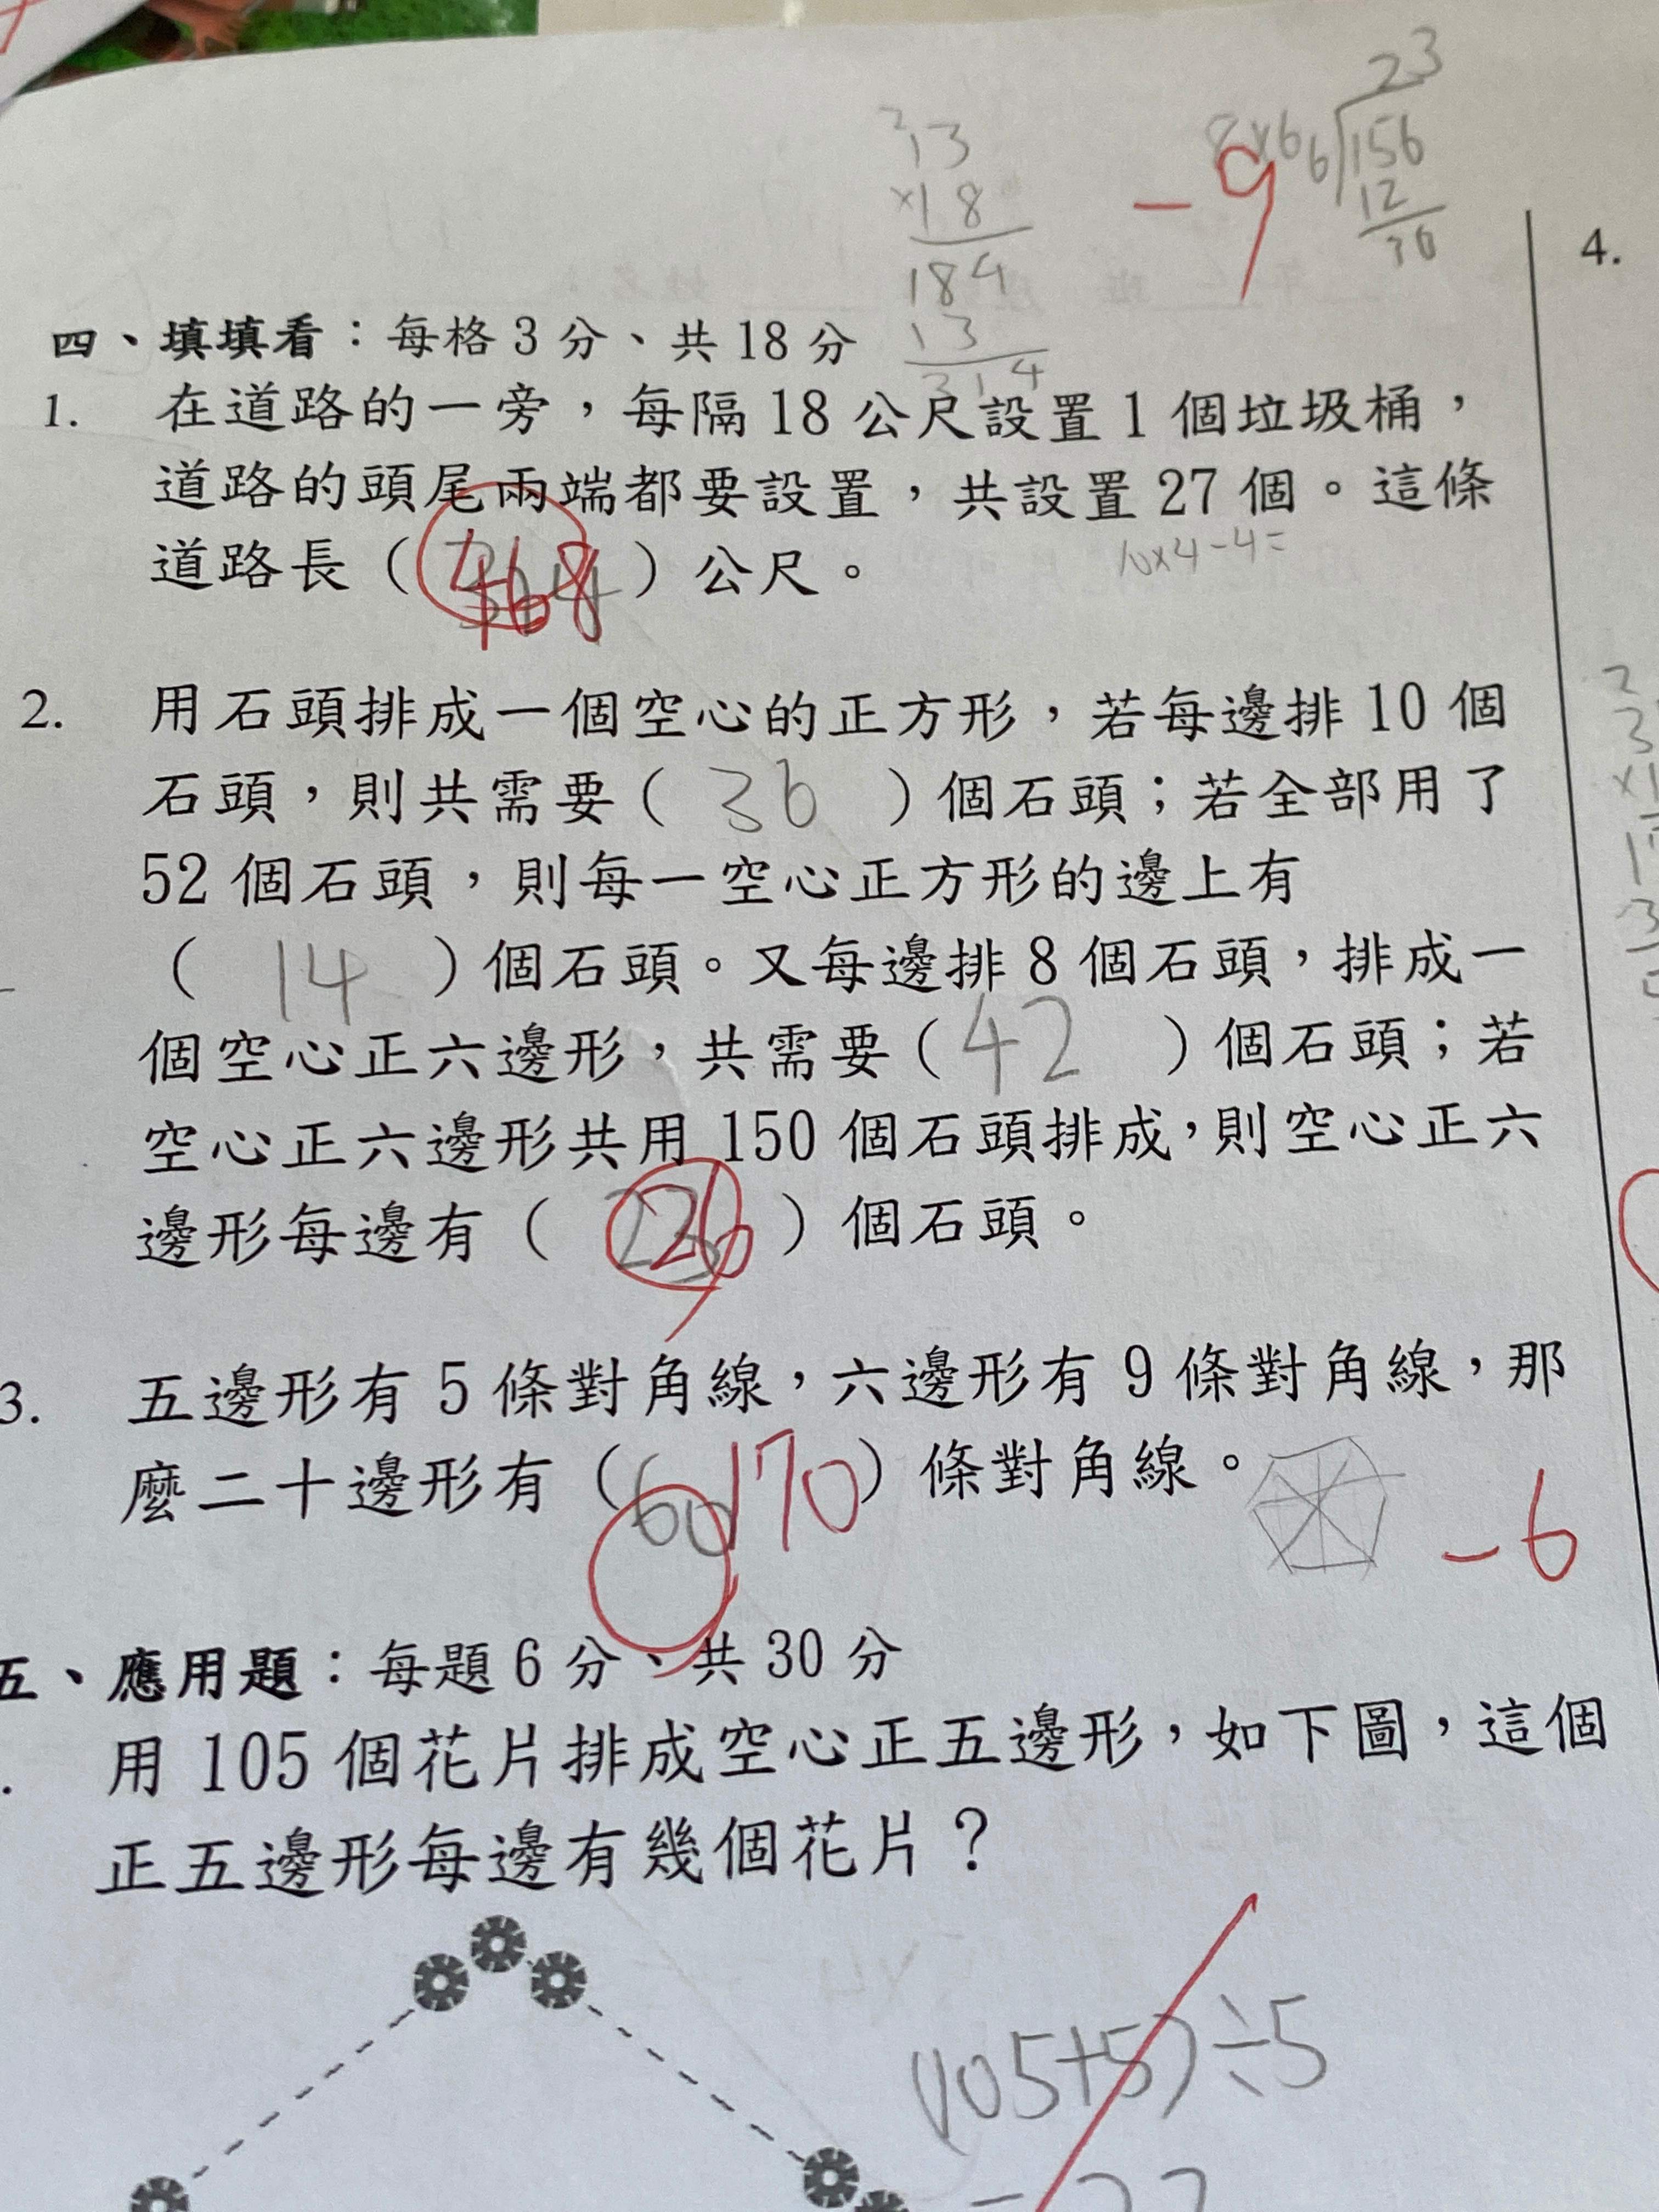 23
8×6 6 156
12
36
2
13
×18
184
13
314
-9
4.
四、填填看：每格 3 分、共 18 分
1. 在道路的一旁，每隔 18 公尺設置 1 個垃圾桶，
道路的頭尾兩端都要設置，共設置 27 個。這條
10×4-4=
道路長（ 314 468 ）公尺。
2. 用石頭排成一個空心的正方形，若每邊排 10 個
石頭，則共需要（ 36 ）個石頭；若全部用了
52 個石頭，則每一空心正方形的邊上有
（ 14 ）個石頭。又每邊排 8 個石頭，排成一
個空心正六邊形，共需要（ 42 ）個石頭；若
空心正六邊形共用 150 個石頭排成，則空心正六
邊形每邊有（ 23 26 ）個石頭。
3. 五邊形有 5 條對角線，六邊形有 9 條對角線，那
麼二十邊形有（ 60 170 ）條對角線。
-6
五、應用題：每題 6 分、共 30 分
. 用 105 個花片排成空心正五邊形，如下圖，這個
正五邊形每邊有幾個花片？
(105+5)÷5
=22